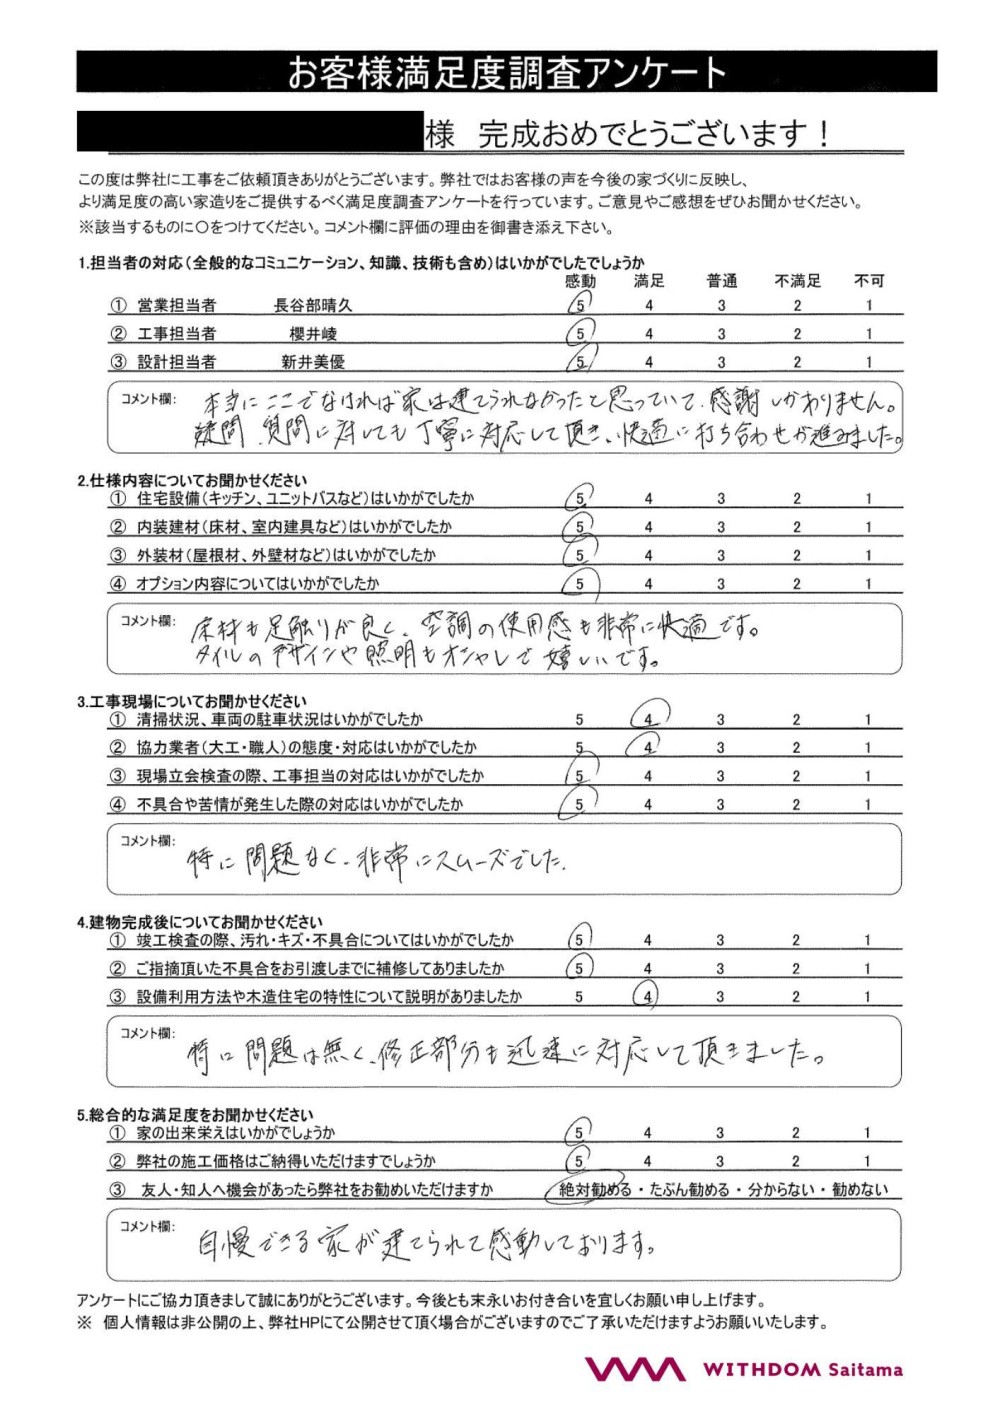 お客様満足度調査アンケート
様　完成おめでとうございます！
この度は弊社に工事をご依頼頂きありがとうございます。弊社ではお客様の声を今後の家づくりに反映し、
より満足度の高い家造りをご提供するべく満足度調査アンケートを行っています。ご意見やご感想をぜひお聞かせください。
※該当するものに〇をつけてください。コメント欄に評価の理由を御書き添え下さい。
1.担当者の対応（全般的なコミュニケーション、知識、技術も含め）はいかがでしたでしょうか
感動 満足 普通 不満足 不可
① 営業担当者 長谷部晴久 5 4 3 2 1
② 工事担当者 櫻井崚 5 4 3 2 1
③ 設計担当者 新井美優 5 4 3 2 1
コメント欄: 本当にここでなければ家は建てられなかったと思っていて、感謝しかありません。
疑問、質問に対しても丁寧に対応して頂き、快適に打ち合わせが進みました。
2.仕様内容についてお聞かせください
① 住宅設備（キッチン、ユニットバスなど）はいかがでしたか 5 4 3 2 1
② 内装建材（床材、室内建具など）はいかがでしたか 5 4 3 2 1
③ 外装材（屋根材、外壁材など）はいかがでしたか 5 4 3 2 1
④ オプション内容についてはいかがでしたか 5 4 3 2 1
コメント欄: 床材も足触りが良く、空調の使用感も非常に快適です。
タイルのデザインや照明もオシャレで嬉しいです。
3.工事現場についてお聞かせください
① 清掃状況、車両の駐車状況はいかがでしたか 5 4 3 2 1
② 協力業者（大工・職人）の態度・対応はいかがでしたか 5 4 3 2 1
③ 現場立会検査の際、工事担当の対応はいかがでしたか 5 4 3 2 1
④ 不具合や苦情が発生した際の対応はいかがでしたか 5 4 3 2 1
コメント欄: 特に問題なく、非常にスムーズでした.
4.建物完成後についてお聞かせください
① 竣工検査の際、汚れ・キズ・不具合についてはいかがでしたか 5 4 3 2 1
② ご指摘頂いた不具合をお引渡しまでに補修してありましたか 5 4 3 2 1
③ 設備利用方法や木造住宅の特性について説明がありましたか 5 4 3 2 1
コメント欄: 特に問題は無く、修正部分も迅速に対応して頂きました。
5.総合的な満足度をお聞かせください
① 家の出来栄えはいかがでしょうか 5 4 3 2 1
② 弊社の施工価格はご納得いただけますでしょうか 5 4 3 2 1
③ 友人・知人へ機会があったら弊社をお勧めいただけますか 絶対勧める・たぶん勧める・分からない・勧めない
コメント欄: 自慢できる家が建てられて感動しております。
アンケートにご協力頂きまして誠にありがとうございます。今後とも末永いお付き合いを宜しくお願い申し上げます。
※ 個人情報は非公開の上、弊社HPにて公開させて頂く場合がございますのでご了承いただけますようお願いいたします。
WITHDOM Saitama